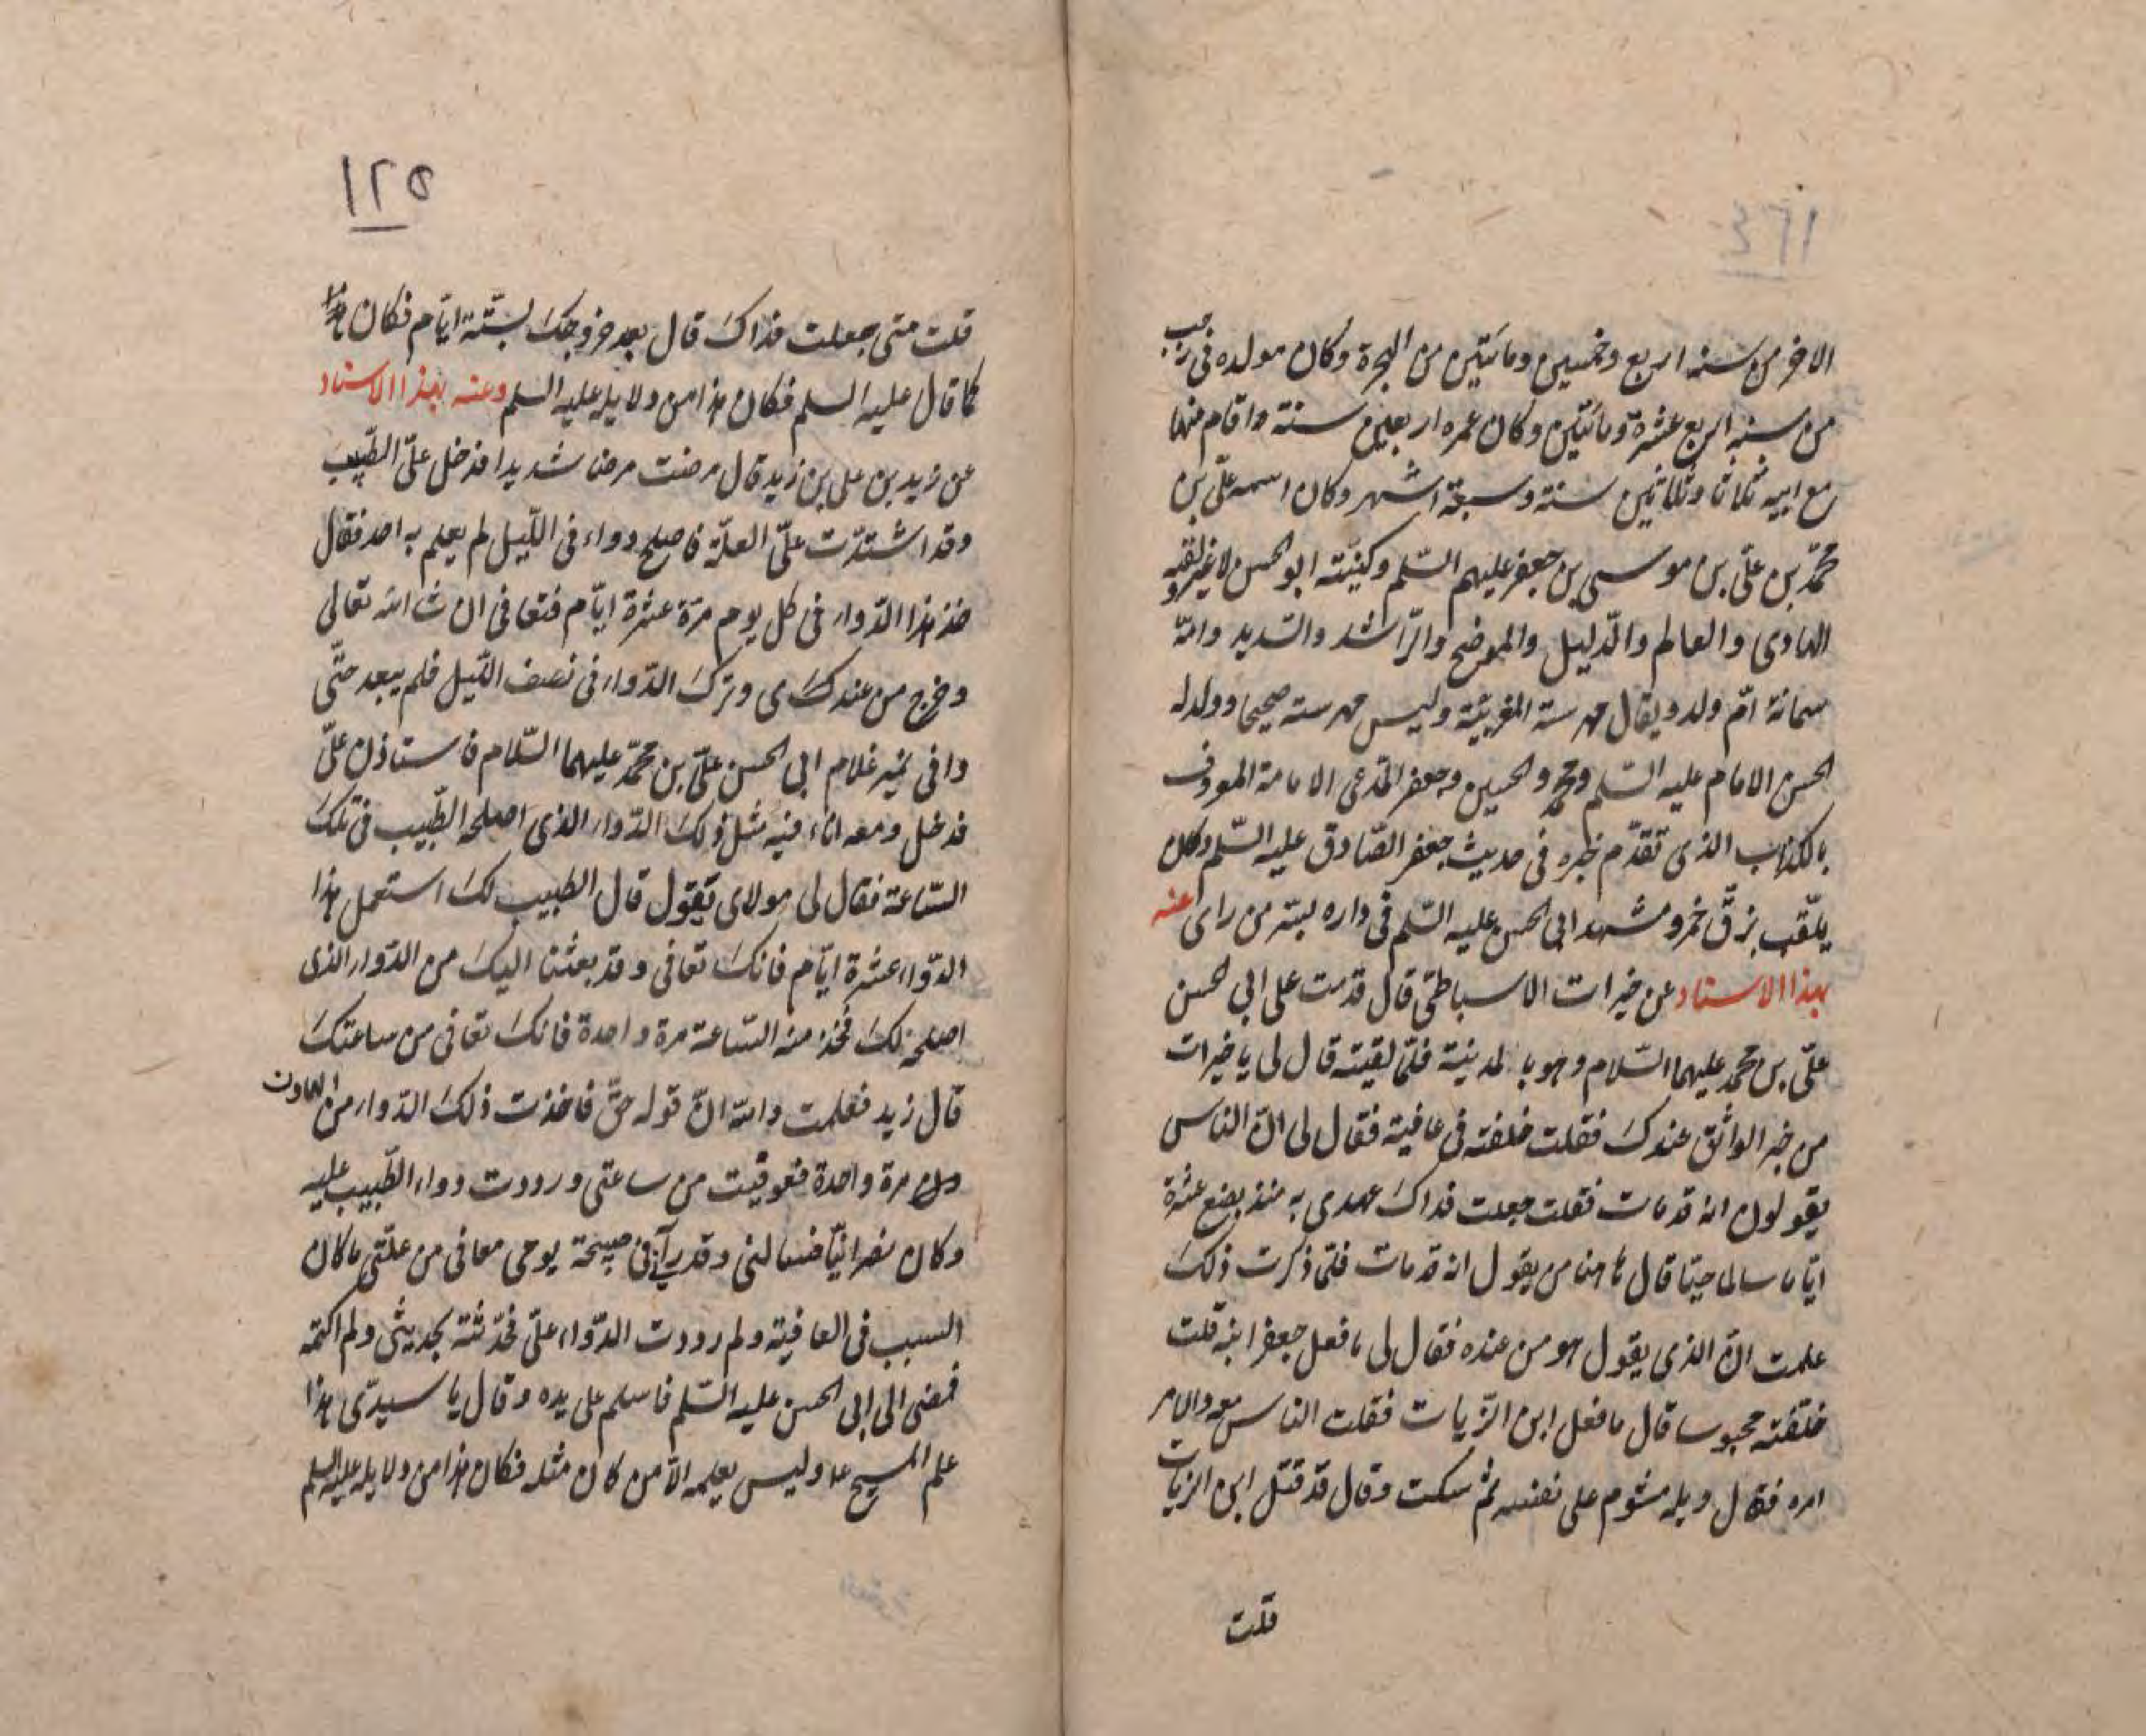 الاخر من سنه اربع وخمسين ومائتين من الهجرة وكان مولده فى رجب
من سنه اربع عشرة ومائتين وكان عمره اربعين سنته واقام منها
مع ابيه ثمانا وثلاثين سنته وسبعة اشهر وكان اسمه علىّ بن
محمّد بن علىّ بن موسى بن جعفر عليهم السّلم وكنيته ابو الحسن لا غير ولقبه
الهادى والعالم والدّليل والموضح والرّاشد والسّديد وامّه
سمانة امّ ولد ويقال مهرسنة المغربيّة وليس مهرسنه صحيحا وولد له
الحسن الامام عليه السّلم ومحمّد والحسين وجعفر المّدعى الامامة المعروف
بالكذاب الذى تقدّم خبره فى حديث جعفر الصّادق عليه السّلم وكان
يلقّب بزقّ خمر ومشهد ابى الحسن عليه السّلم فى داره بسرّ من راى عنه
بهذا الاسناد عن خيرات الاسباطىّ قال قدمت على ابى الحسن
علىّ بن محمّد عليهما السّلام وهو بالمدينة فلمّا لقيته قال لى يا خيرات
من خبر الواثق عندك فقلت خلفته فى عافية فقال لى انّ الناس
يقولون انه قد مات فقلت جعلت فداك عهدى به منذ بضع عشرة
ايّاما سالما حيّا قال هاهنا من يقول انه قد مات فلمّا ذكرت ذلك
علمت انّ الذى يقول هو من عنده فقال لى ما فعل جعفر ابنه قلت
خلفته محبوسا قال ما فعل ابن الزّيات فقلت الناس معه والامر
امره فقال ويله مشوم على نفسه ثم سكت وقال قد قتل ابن الزيات
قلت
١٢٥
قلت متى جعلت فداك قال بعد خروجك بستّة ايّام فكان هذا
كما قال عليه السلم فكان هذا من دلايله عليه السلم وعنه بهذا الاسناد
عن زيد بن على بن زيد قال مرضت مرضا شديدا فدخل علىّ الطّبيب
وقد اشتدّت علىّ العلّة فاصلح دواء فى اللّيل لم يعلم به احد فقال
خذ هذا الدّواء فى كل يوم مرّة عشرة ايّام فتعافى ان شا الله تعالى
وخرج من عندى وترك الدّواء فى نصف اللّيل فلم يبعد حتّى
وافى نمير غلام ابى الحسن علىّ بن محمّد عليهما السّلام فاستاذن علىّ
فدخل ومعه اناء فيه مثل ذلك الدّواء الذى اصلحه الطّبيب فى تلك
السّاعة فقال لى مولاى تيقول قال الطبيب لك استعمل هذا
الدّواء عشرة ايّام فانك تعافى وقد بعثنا اليك من الدّواء الذى
اصلحه لك فخذ منه السّاعة مرة واحدة فانك تعافى من ساعتك
قال زيد فعلمت والله انّ قوله حقّ فاخذت ذلك الدّواء من الهاون
مرة واحدة فعوفيت من ساعتى ورددت دواء الطّبيب عليه
وكان نصرانيّا فسالنى وقد رآنى فى صبيحة يومى معافى من علّتى ما كان
السبب فى العافية ولم رددت الدّواء علىّ فحدّثته بحديثى ولم اكتمه
فمضى الى ابى الحسن عليه السّلم فاسلم على يده وقال يا سيدّى هذا
علم المسيح ع وليس يعلمه الّا من كان مثله فكان هذا من دلايله عليه السلم